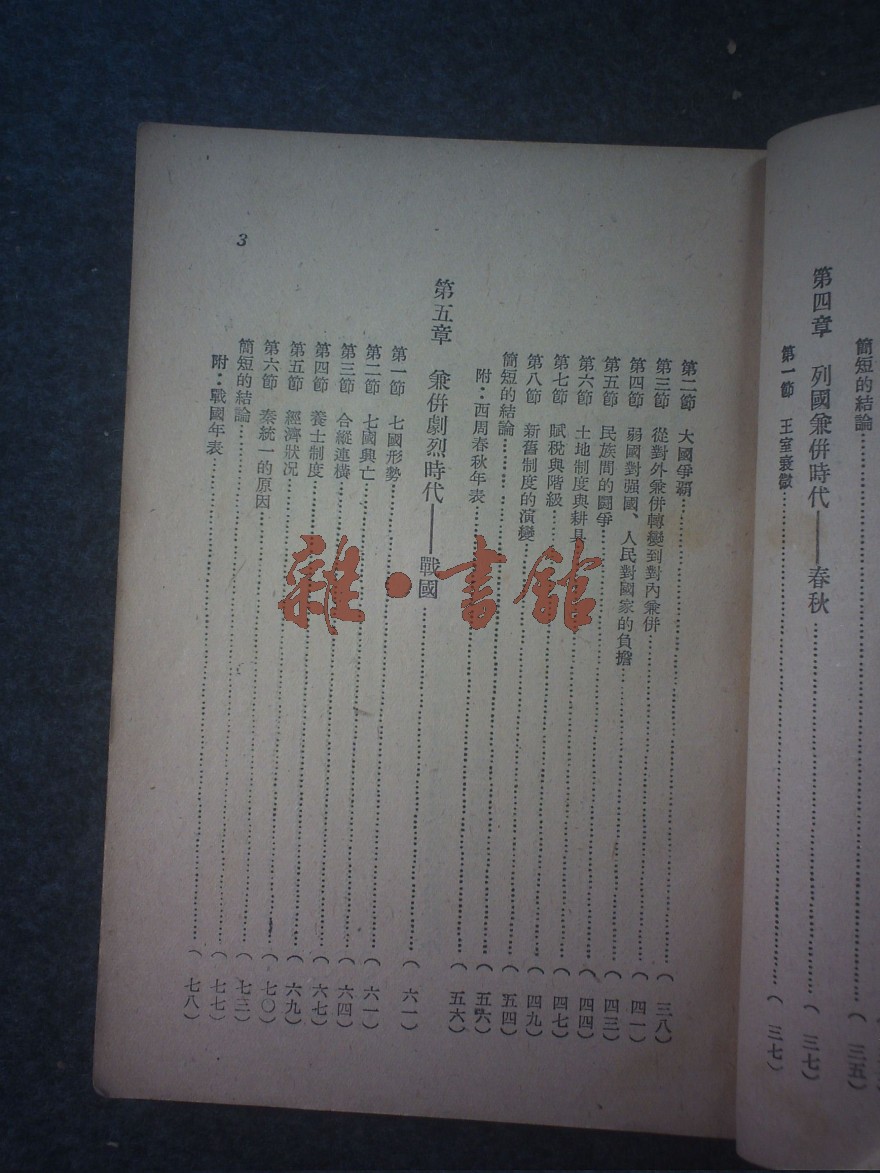 簡短的結論……(三五)
第四章 列國兼併時代——春秋……(三七)
第一節 王室衰微……(三七)
第二節 大國爭霸……(三八)
第三節 從對外兼併轉變到對內兼併……(四一)
第四節 弱國對强國、人民對國家的負擔……(四三)
第五節 民族間的鬪爭……(四四)
第六節 土地制度與耕具……(四七)
第七節 賦稅與階級……(四九)
第八節 新舊制度的演變……(五四)
簡短的結論……(五六)
附：西周春秋年表……(五六)
第五章 兼併劇烈時代——戰國……(六一)
第一節 七國形勢……(六一)
第二節 七國興亡……(六四)
第三節 合縱連橫……(六七)
第四節 養士制度……(六九)
第五節 經濟狀况……(七〇)
第六節 秦統一的原因……(七三)
簡短的結論……(七七)
附：戰國年表……(七八)
3
雜·書館